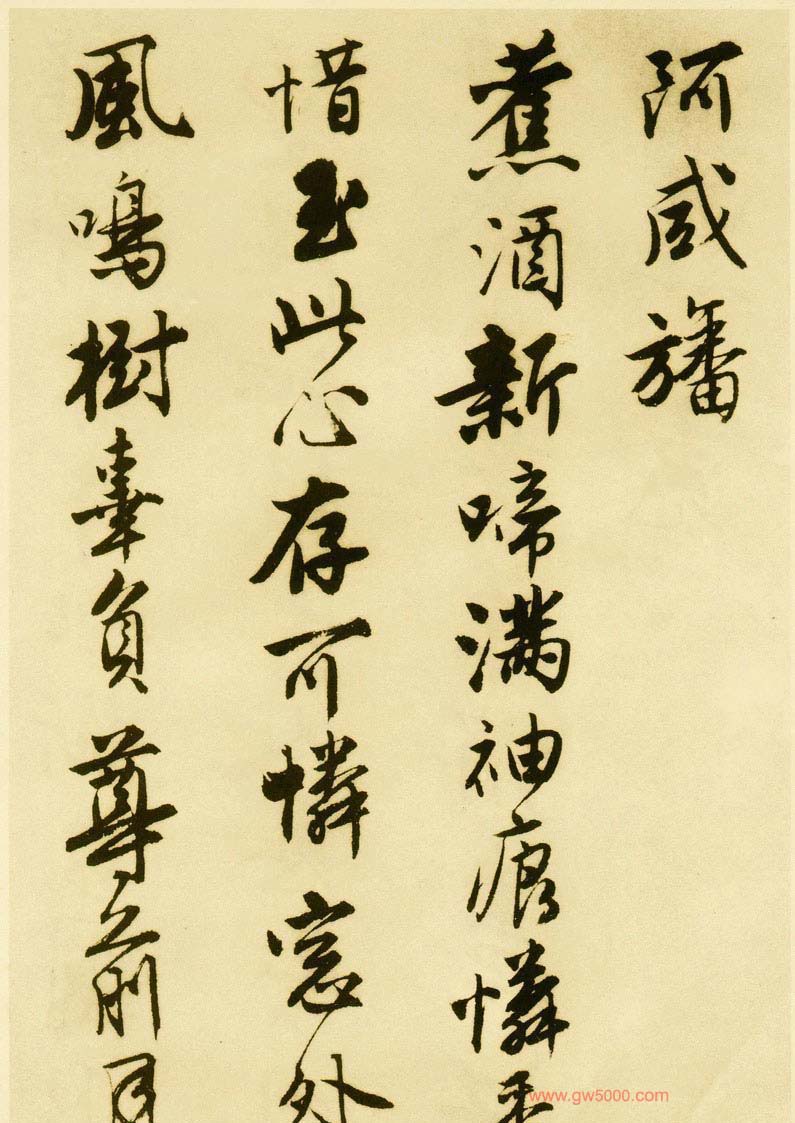 阿咸旛
蕉酒新啼滿袖痕憐
惜玉此心存可憐窓外
風鳴樹辜負尊前月
www.gw5000.com